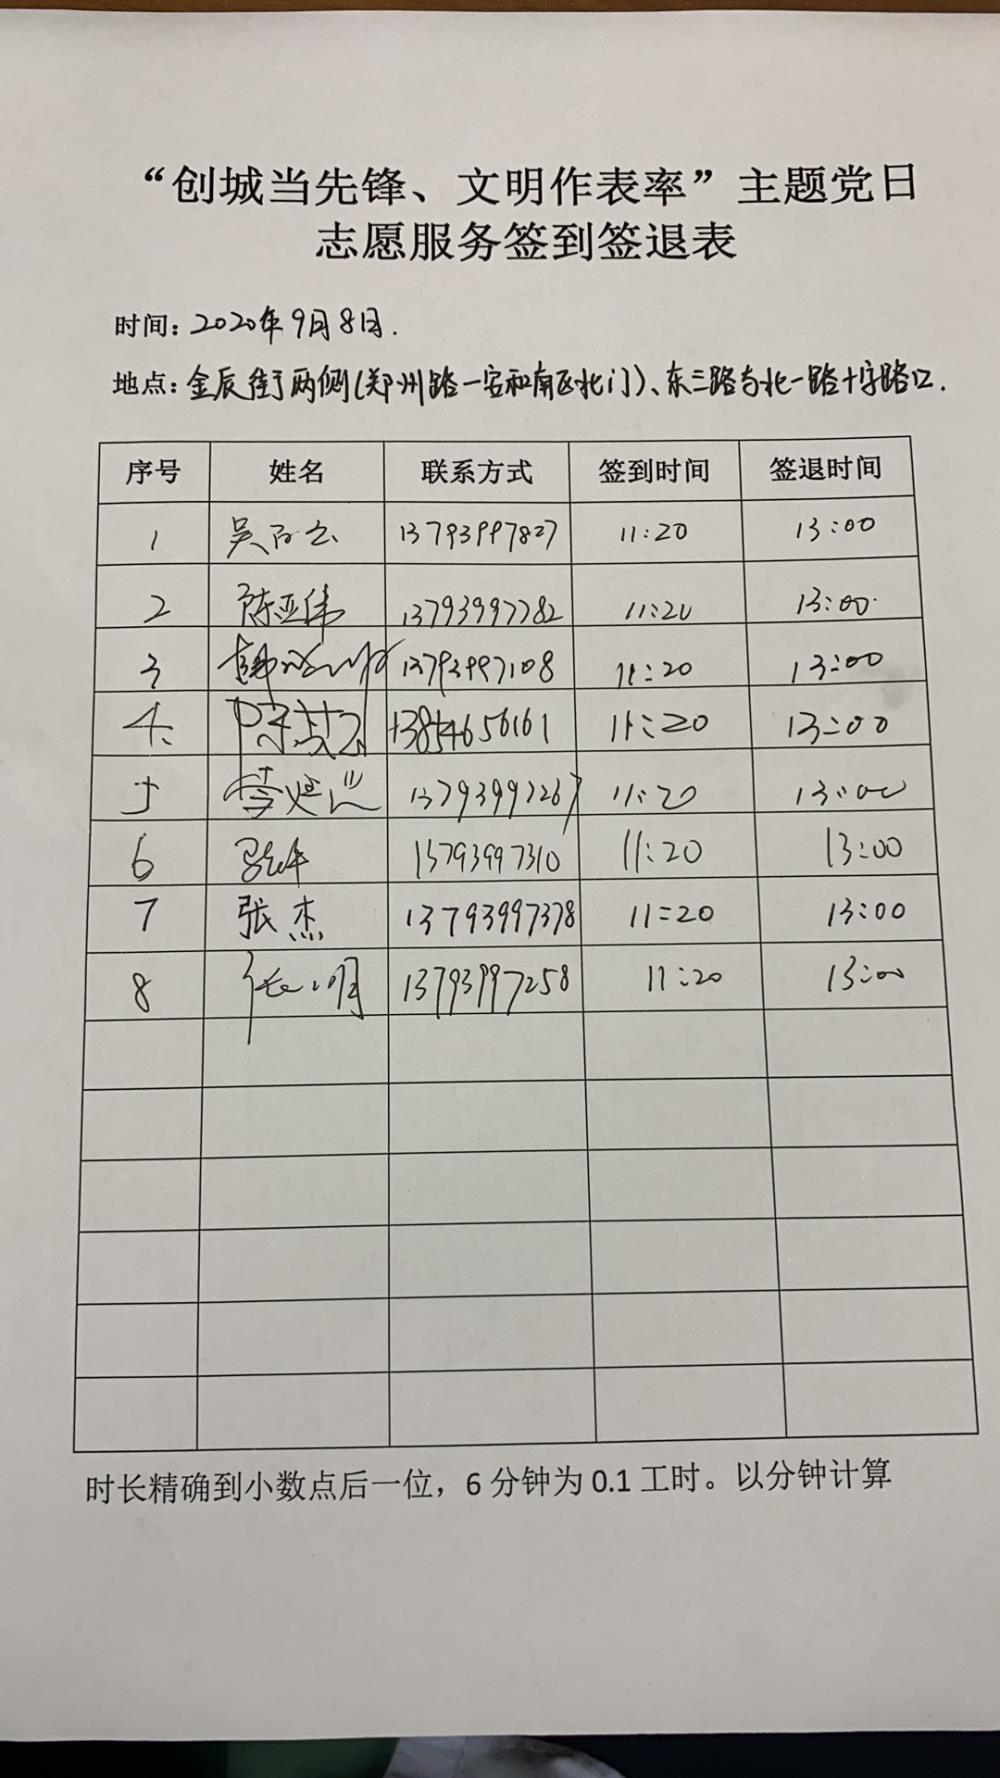 “创城当先锋、文明作表率”主题党日
志愿服务签到签退表
时间：2020年9月8日.
地点：金辰街两侧(郑州路一安和南区北门)、东三路与北一路十字路口.
序号 姓名 联系方式 签到时间 签退时间
1 吴 13793997827 11:20 13:00
2 陈亚伟 13793997782 11:20 13:00
3 13793997108 11:20 13:00
4 13854656161 11:20 13:00
5 13793997267 11:20 13:00
6 13793997310 11:20 13:00
7 张杰 13793997378 11:20 13:00
8 13793997258 11:20 13:00
时长精确到小数点后一位，6分钟为0.1工时。以分钟计算